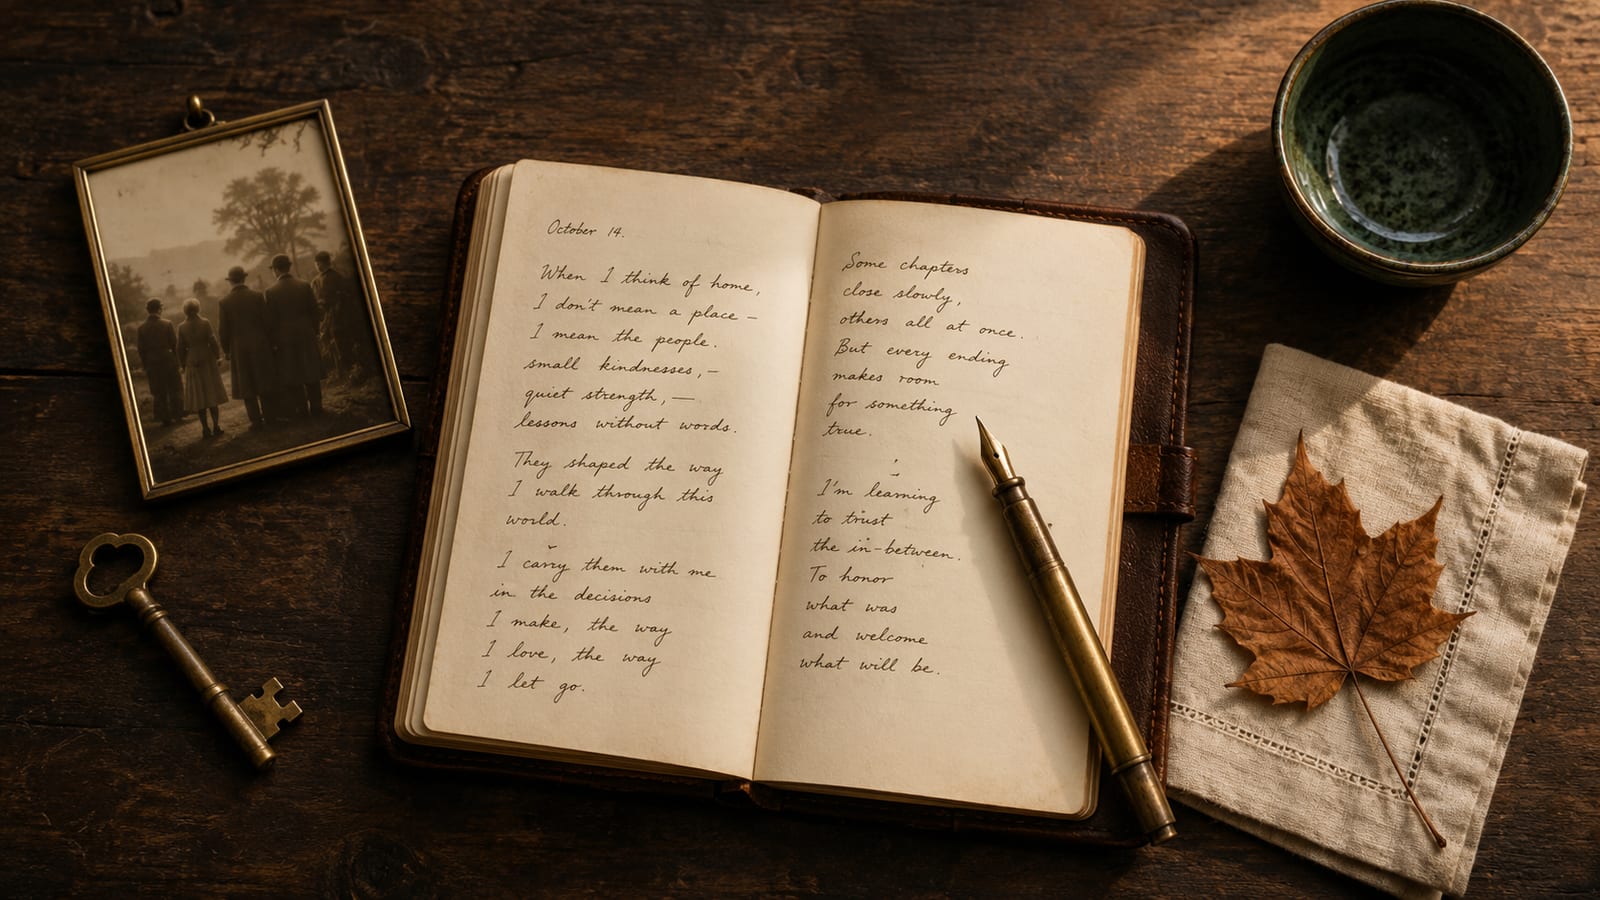 October 14.
When I think of home,
I don't mean a place –
I mean the people.
small kindnesses, –
quiet strength, —
lessons without words.
They shaped the way
I walk through this
world.
I carry them with me
in the decisions
I make, the way
I love, the way
I let go.
Some chapters
close slowly,
others all at once.
But every ending
makes room
for something
true.
I'm learning
to trust
the in-between.
To honor
what was
and welcome
what will be.